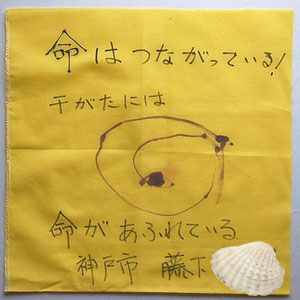 命はつながっている!
干がたには
命があふれている
神戸市 藤下